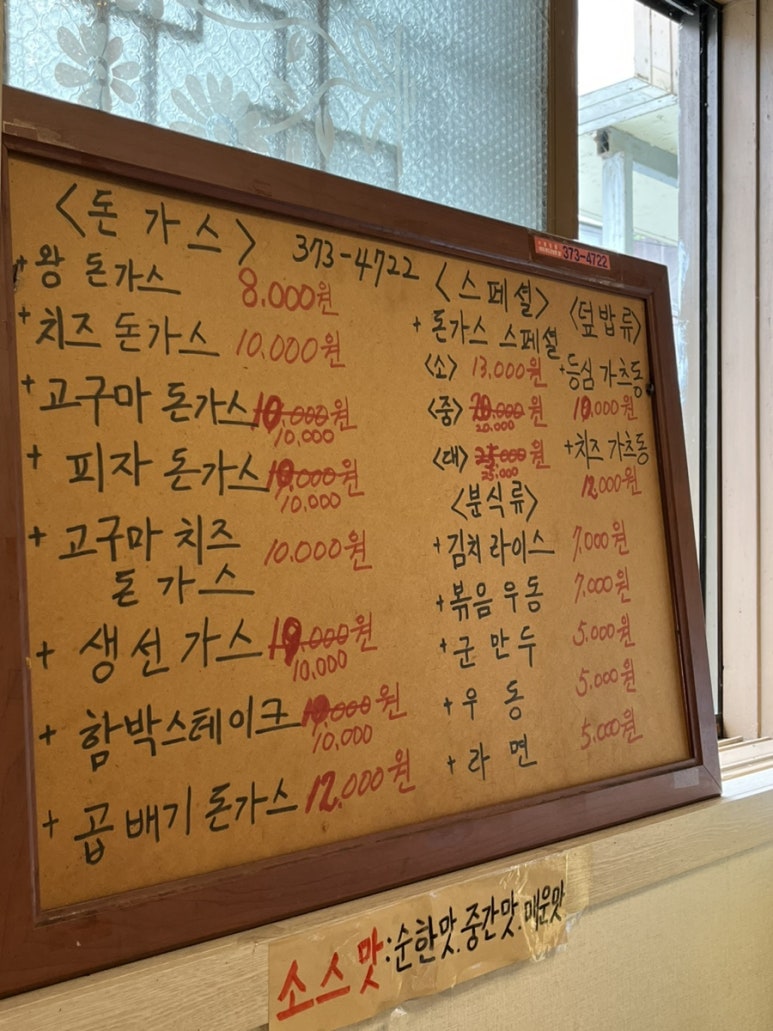 <돈가스> 373-4722
+왕 돈가스 8.000원
+치즈 돈가스 10.000원
+고구마 돈가스 10.000원
10,000
+피자 돈가스 10.000원
10,000
+고구마 치즈 10.000원
돈가스
+생선가스 10.000원
10,000
+함박스테이크 10.000원
10,000
+곱배기 돈가스 12.000원
373-4722
<스페셜>
+돈가스 스페셜
<소> 13,000원
<중> 20.000원
20.000
<대> 25.000원
25,000
<분식류>
+김치라이스 7.000원
+볶음우동 7.000원
+군만두 5.000원
+우동 5.000원
+라면 5.000원
<덮밥류>
+등심 가츠동
10,000원
+치즈 가츠동
12,000원
소스맛:순한맛.중간맛.매운맛